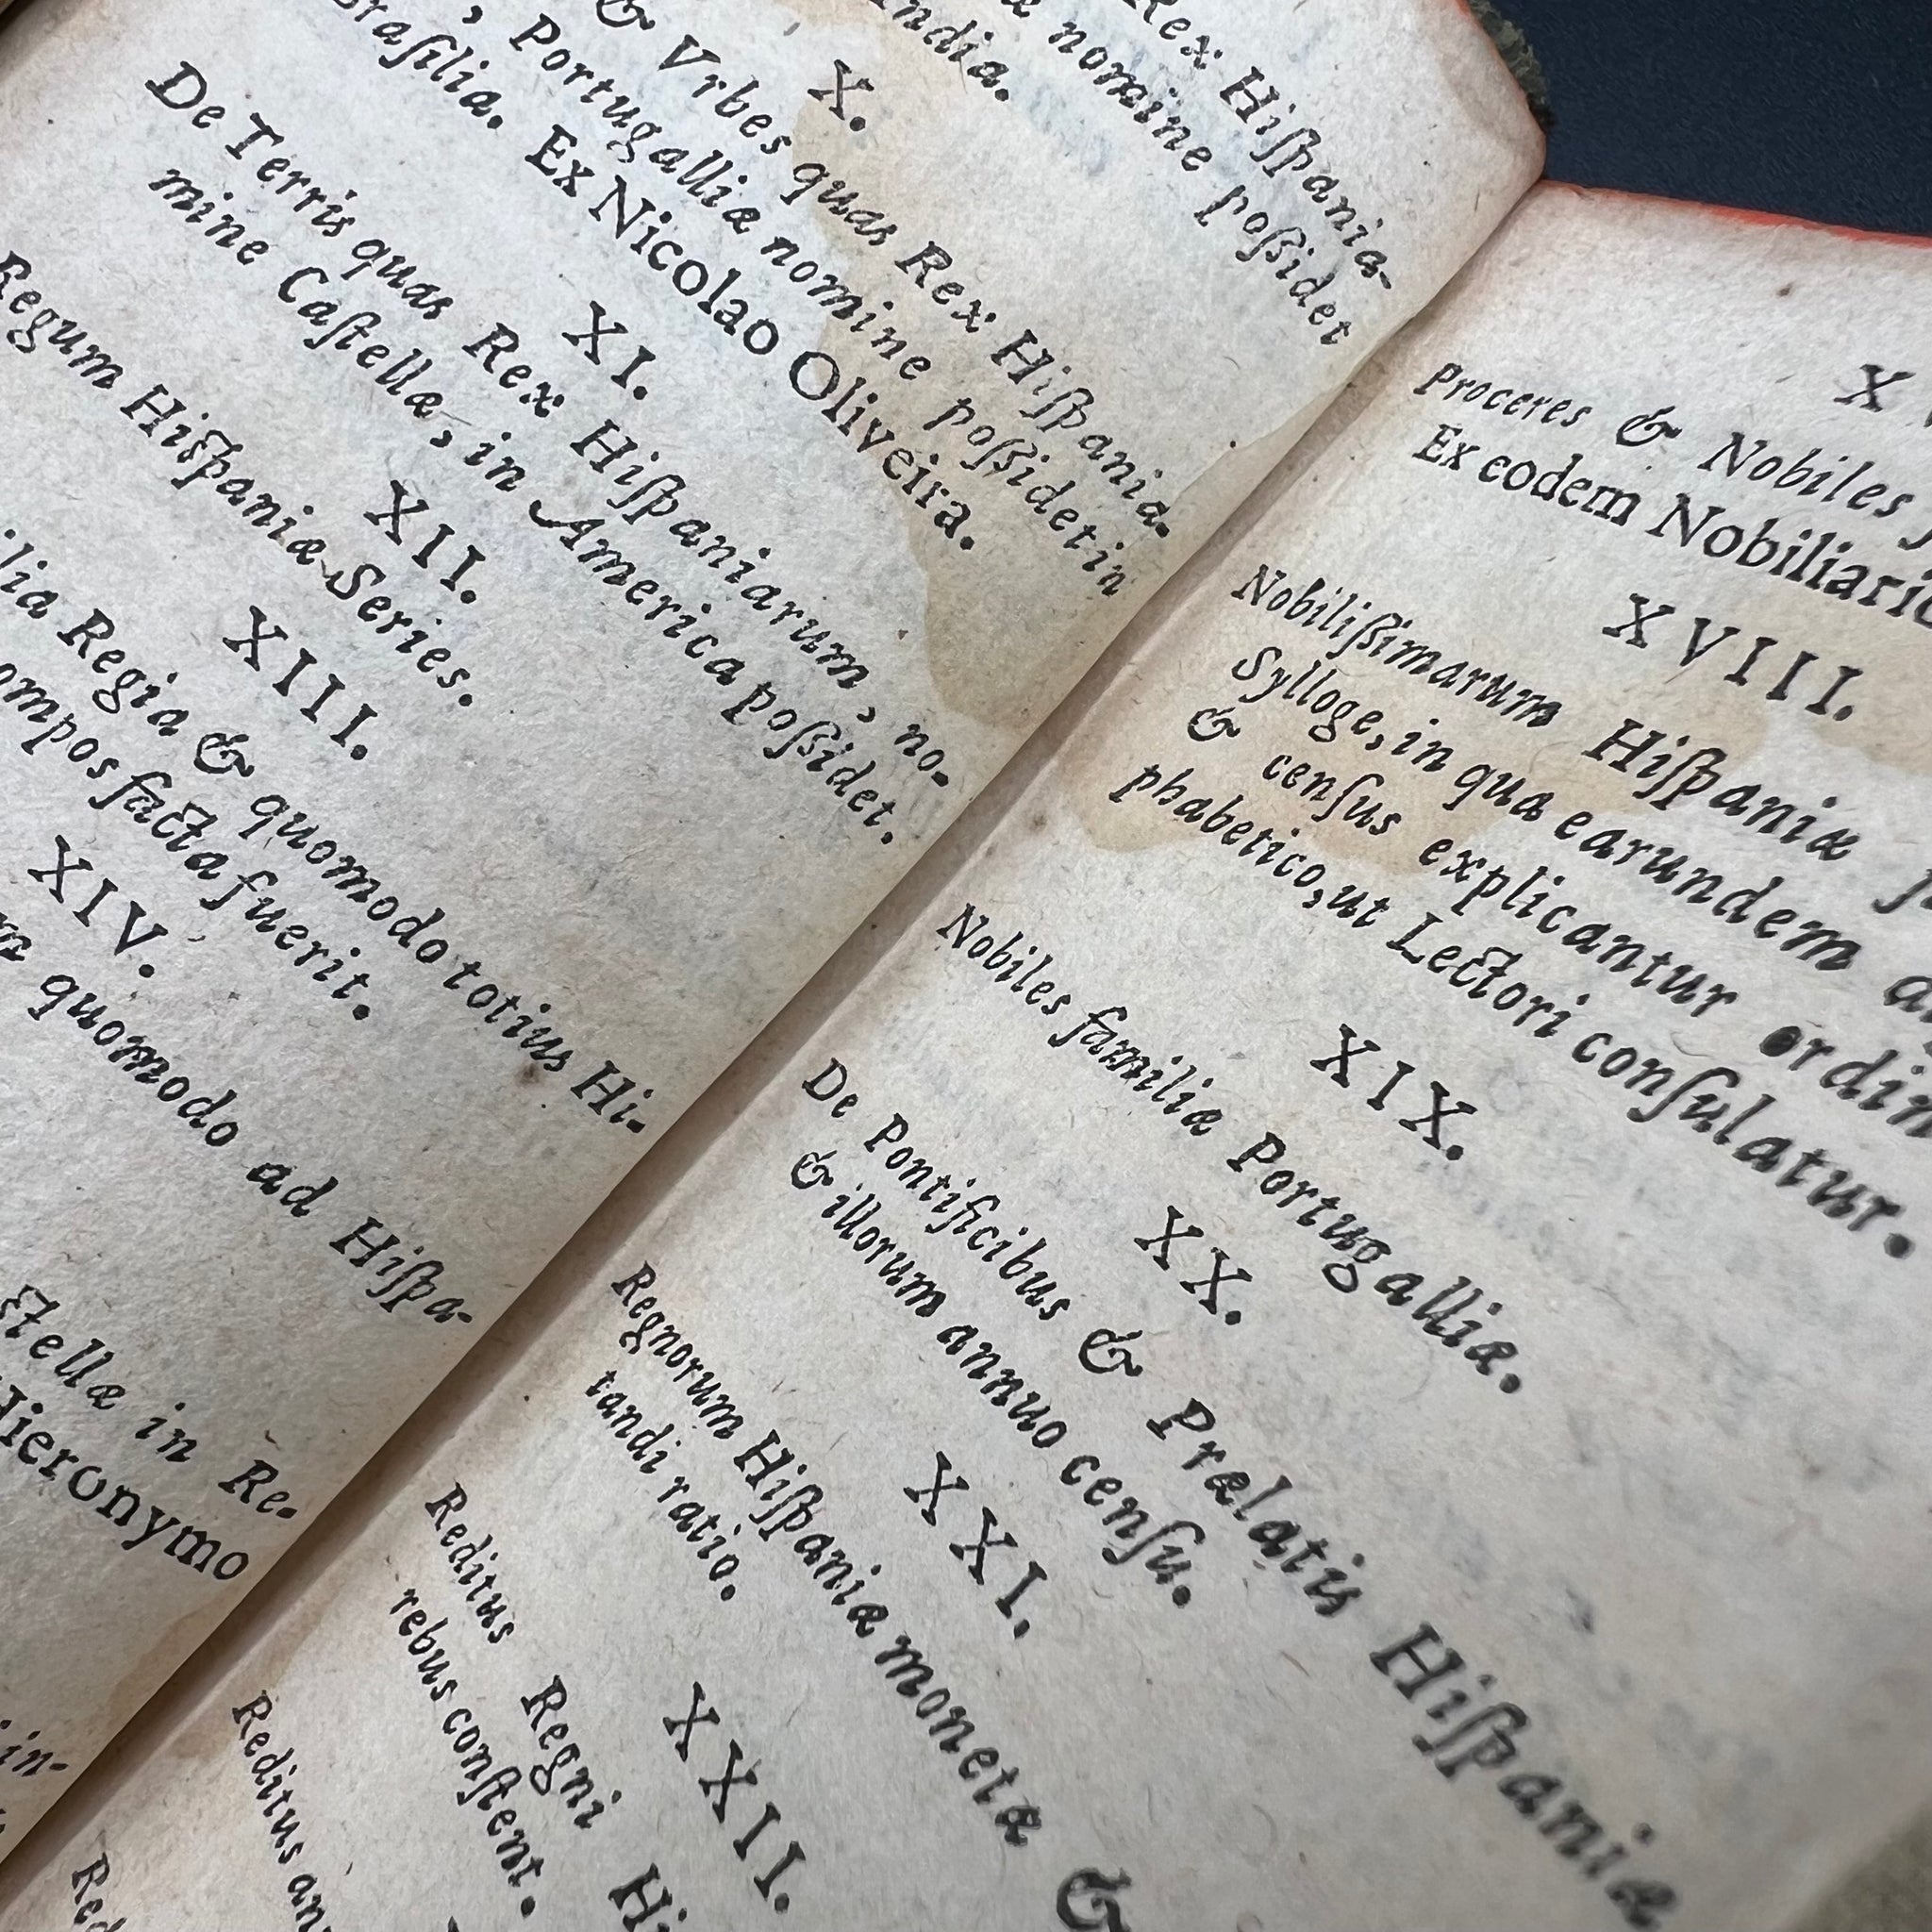 Rex Hiſpania-
nomine poſsidet
India.
X.
& Vrbes quas Rex Hiſpania-
, Portugalliæ nomine poſsidet in
Braſilia. Ex Nicolao Oliveira.
XI.
De Terris quas Rex Hiſpaniarum, no-
mine Caſtellæ, in America poſsidet.
XII.
Regum Hiſpaniæ Series.
XIII.
Regia & quomodo totius Hi-
facta fuerit.
XIV.
quomodo ad Hiſpa-
in Re-
Hieronymo
in-
Proceres & Nobiles
Ex eodem Nobiliario
XVIII.
Nobiliſsimarum Hiſpaniæ
Sylloge, in qua earundem
& cenſus explicantur
phabetico, ut Lectori conſulatur.
XIX.
Nobiles familiæ Portugalliæ.
XX.
De Pontificibus & Prælatis Hiſpaniæ
& illorum annuo cenſu.
XXI.
Regnorum Hiſpaniæ moneta &
tandi ratio.
XXII.
Reditus Regni
rebus conſtent.
Reditus